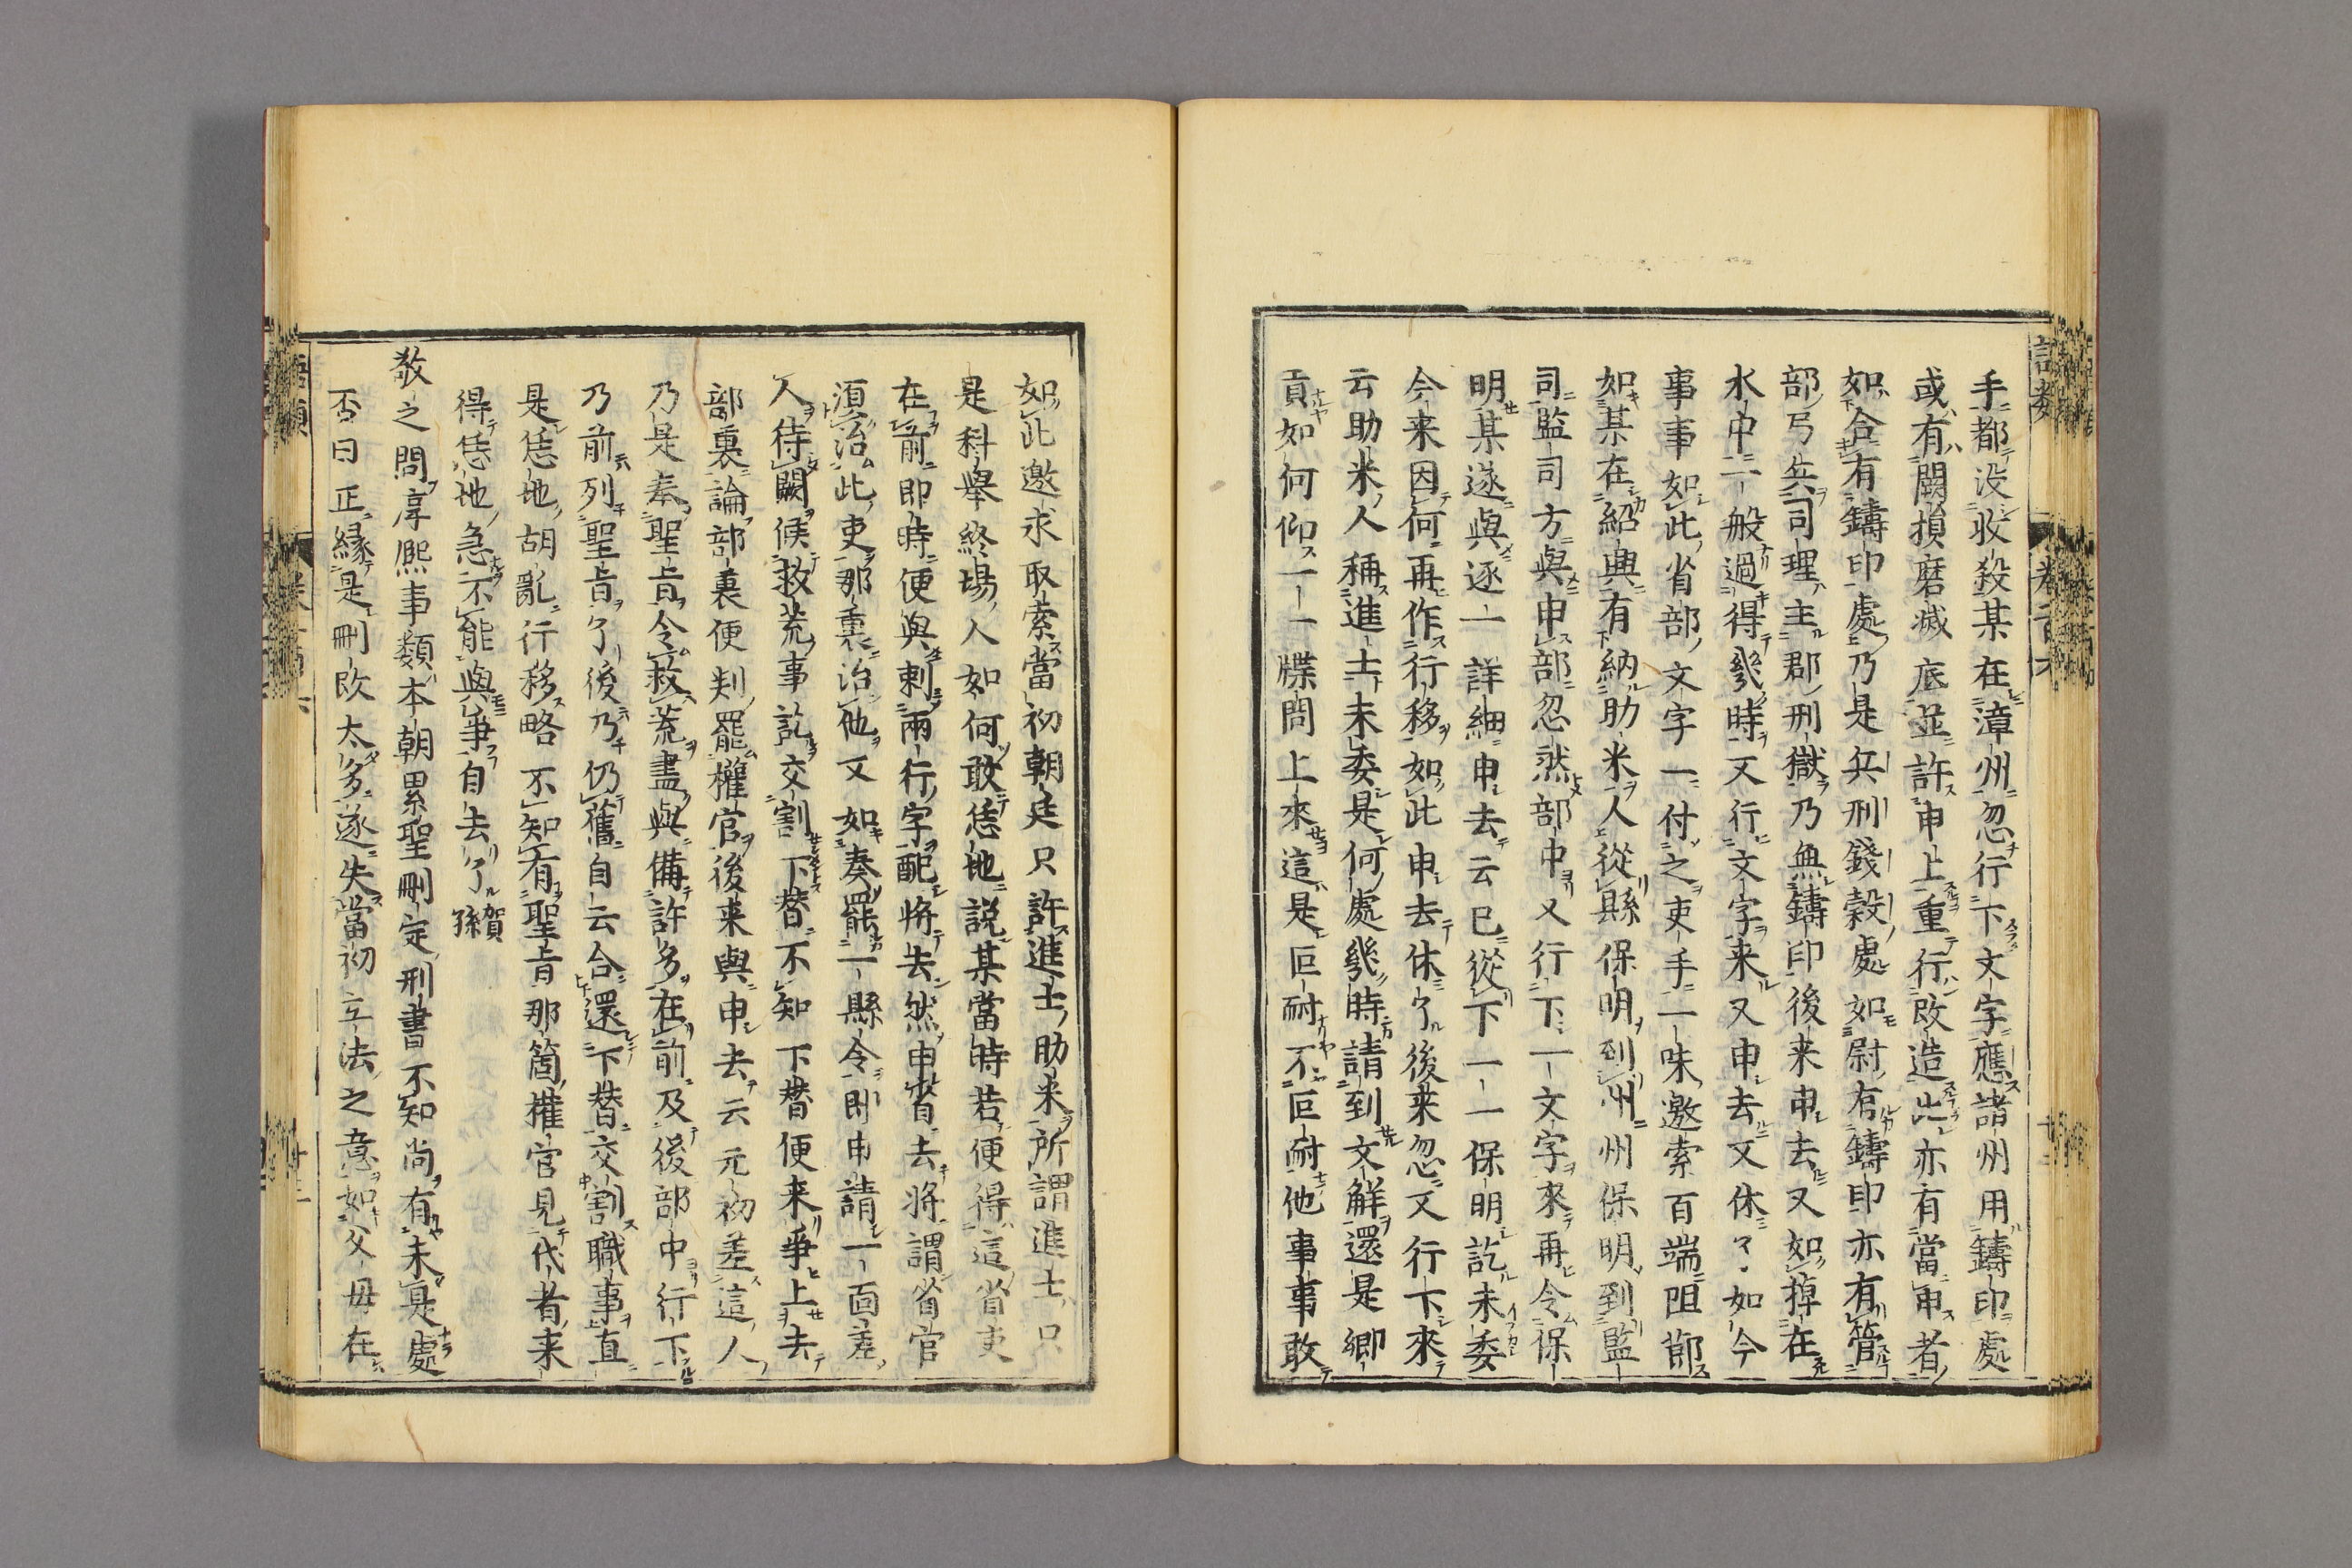 手都没收殺某在漳州忽行下文字應諸州用鑄印處
或有闕損磨滅底並許申上重行改造此亦有當申者
如合有鑄印處乃是兵刑錢穀處如尉有鑄印亦有管
部弓兵司理主郡刑獄乃無鑄印後来申去又如掉在
水中一般過得幾時又行文字来又申去又休了如今
事事如此省部文字一付之吏手一味邀索百端阻節
如某在紹興有納助米人從縣保明到州州保明到監
司監司方與申部忽然部中又行下一文字來再令保
明某遂與逐一詳細申去云已從下一一保明訖未委
今来因何再作行移如此申去休了後来忽又行下來
云助米人稱進士未委是何處幾時請到文解還是鄉
貢如何仰一一牒問上來這是叵耐不叵耐他事事敢
如此邀求取索當初朝廷只許進士助米所謂進士只
是科舉終場人如何敢恁地説某當時若便得這省吏
在前即時便與刺兩行字配將去然申省去將謂省官
須治此吏那裏治他又如奏罷一縣令即申請一面差
人待闕候救荒事訖交割下替不知下替便来爭上去
部裏論部裏便判罷權官後来與申去云元初差這人
乃是奉聖旨令救荒盡與備許多在前及後部中行下
乃前列聖旨了後乃仍舊自云合還下替交割職事直
是恁地胡亂行移略不知有聖旨那箇權官見代者来
得恁地急不能與爭自去了賀孫
敬之問淳熙事類本朝累聖刪定刑書不知尚有未是處
否曰正縁是刪改太多遂失當初立法之意如父母在